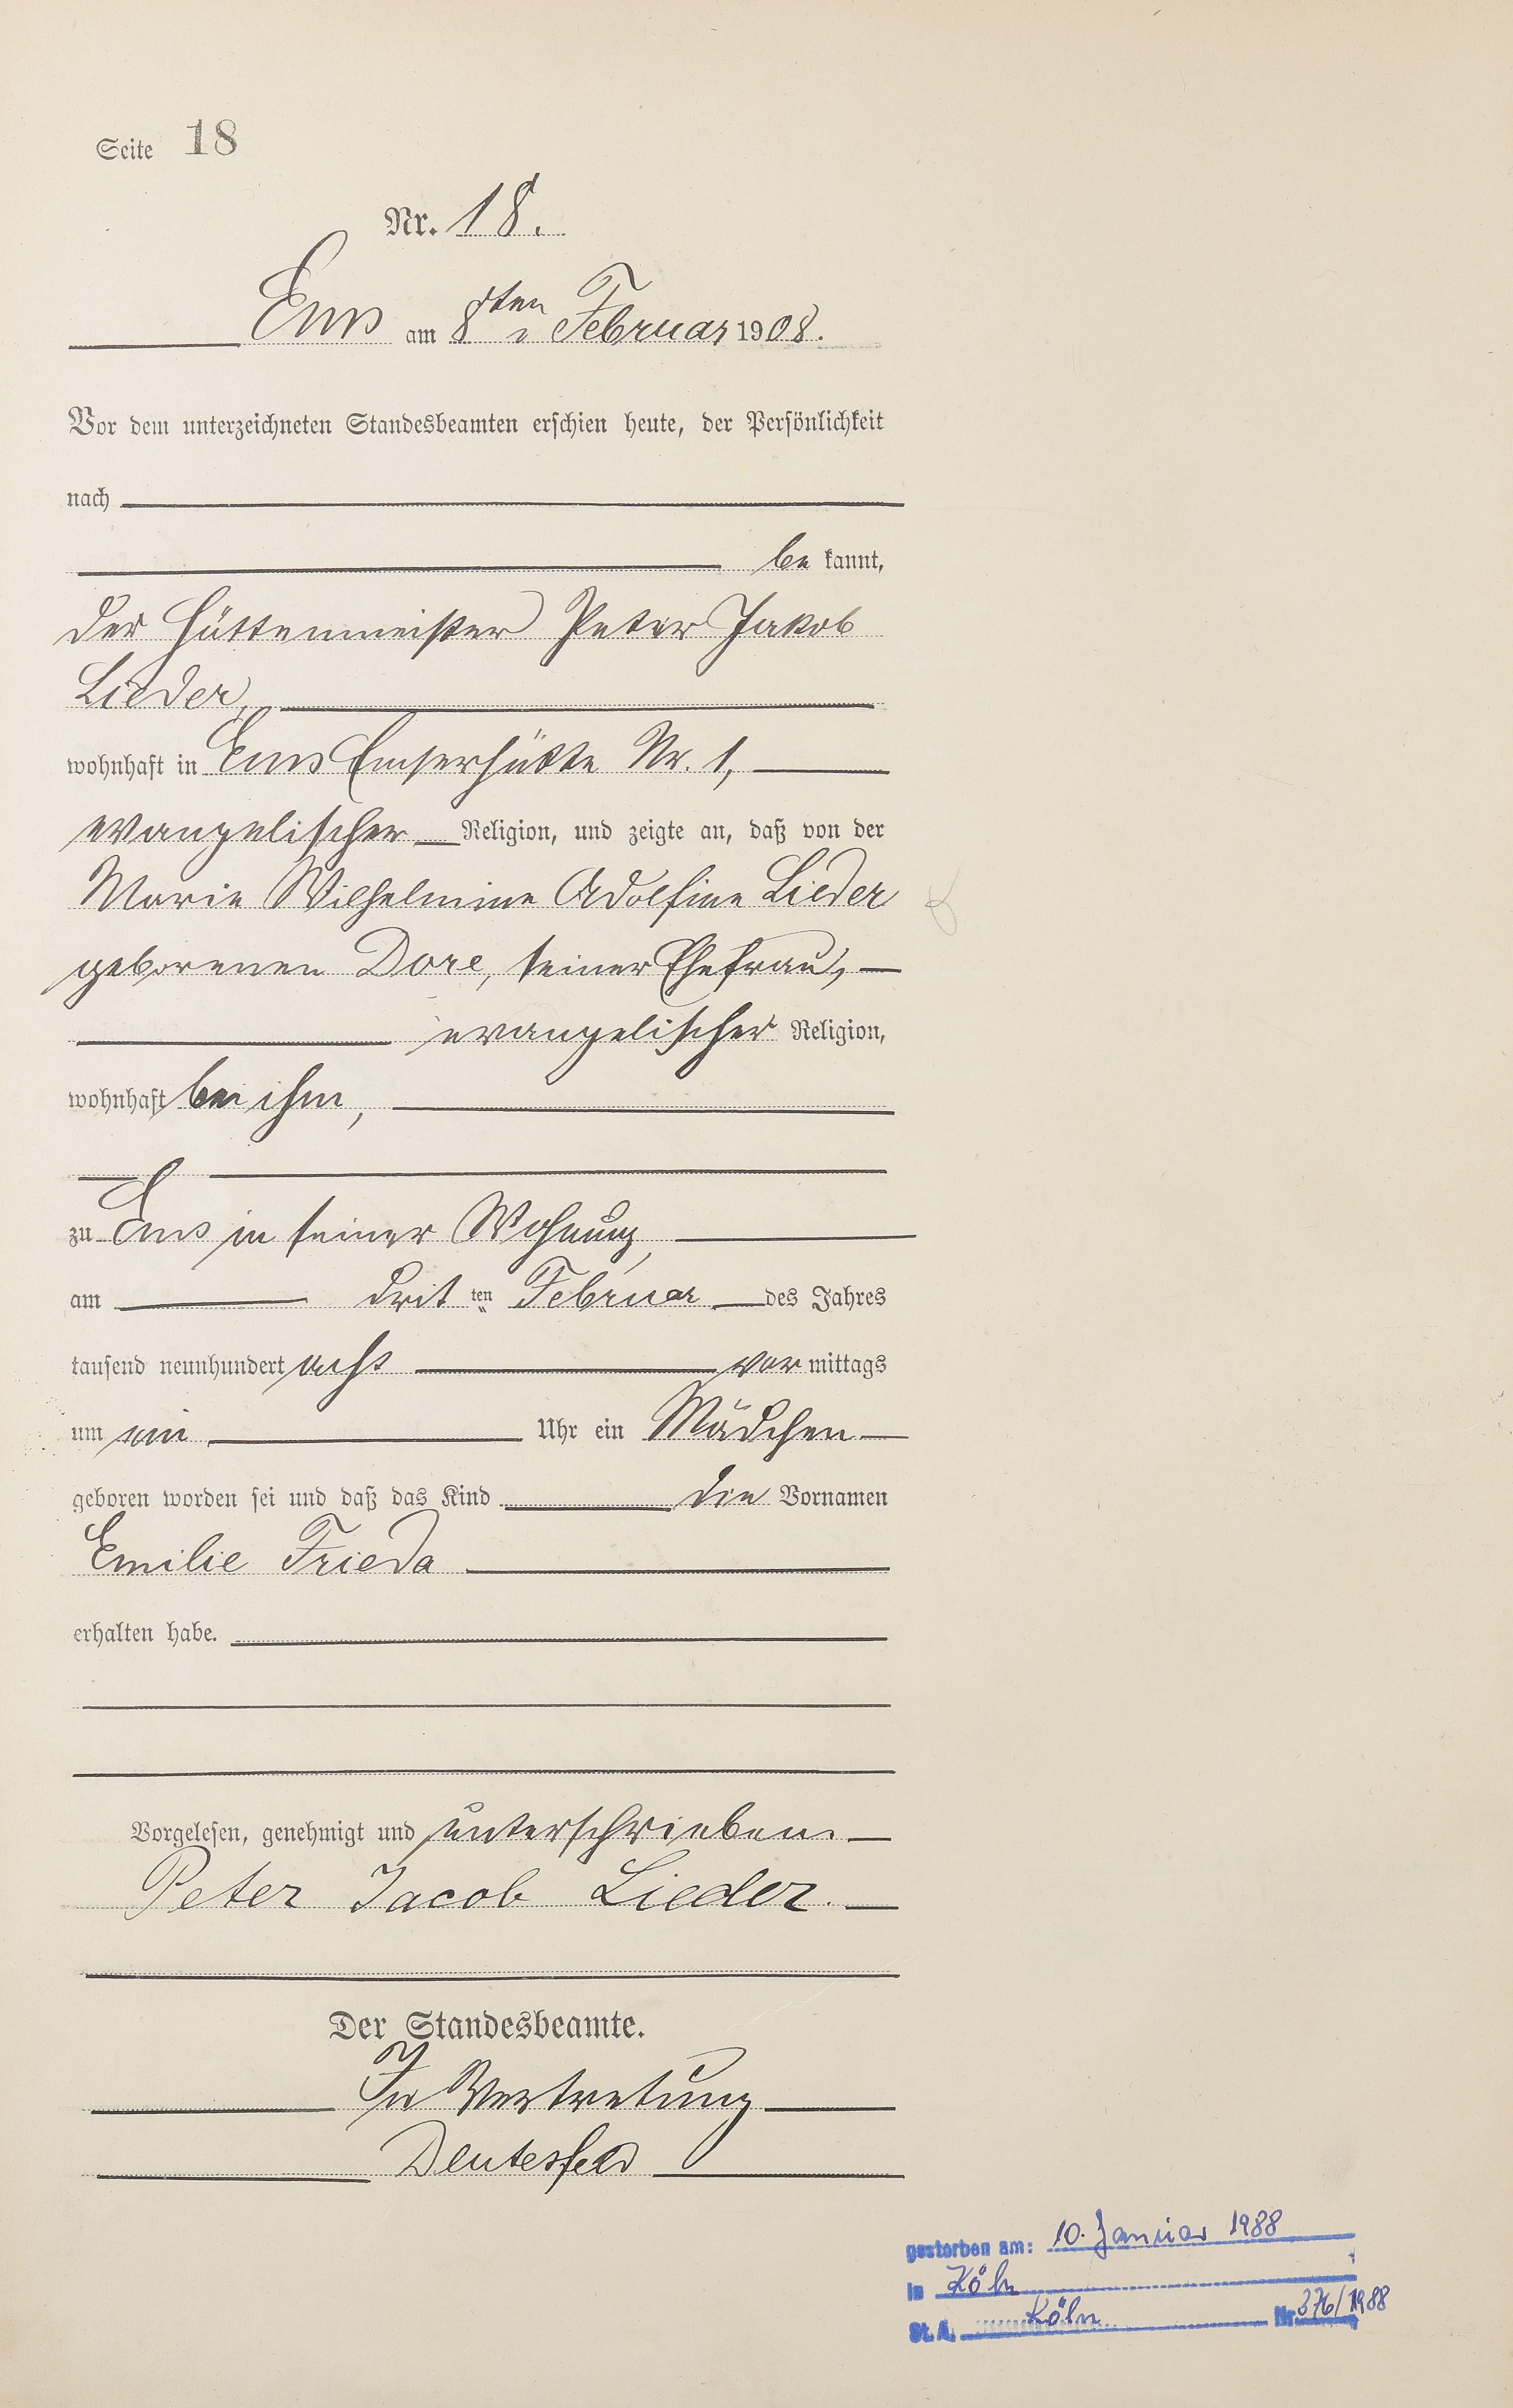 Seite 18
Nr. 18.
Ems am 8ten Februar 1908.
Vor dem unterzeichneten Standesbeamten erschien heute, der Persönlichkeit
nach
be kannt,
der Hüttenmeister Peter Jakob
Lieder,
wohnhaft in Ems Emserhütte Nr. 1,
evangelischer Religion, und zeigte an, daß von der
Marie Wilhelmine Adolfine Lieder
geborenen Dore, seiner Ehefrau,
evangelischer Religion,
wohnhaft bei ihm,
zu Ems in seiner Wohnung,
am drit ten Februar des Jahres
tausend neunhundert acht vor mittags
um ein Uhr ein Mädchen
geboren worden sei und daß das Kind die Vornamen
Emilie Frieda
erhalten habe.
Vorgelesen, genehmigt und unterschrieben.
Peter Jacob Lieder.
Der Standesbeamte.
In Vertretung
gestorben am: 10. Januar 1988
in Köln
St. A. Köln Nr 376/1988